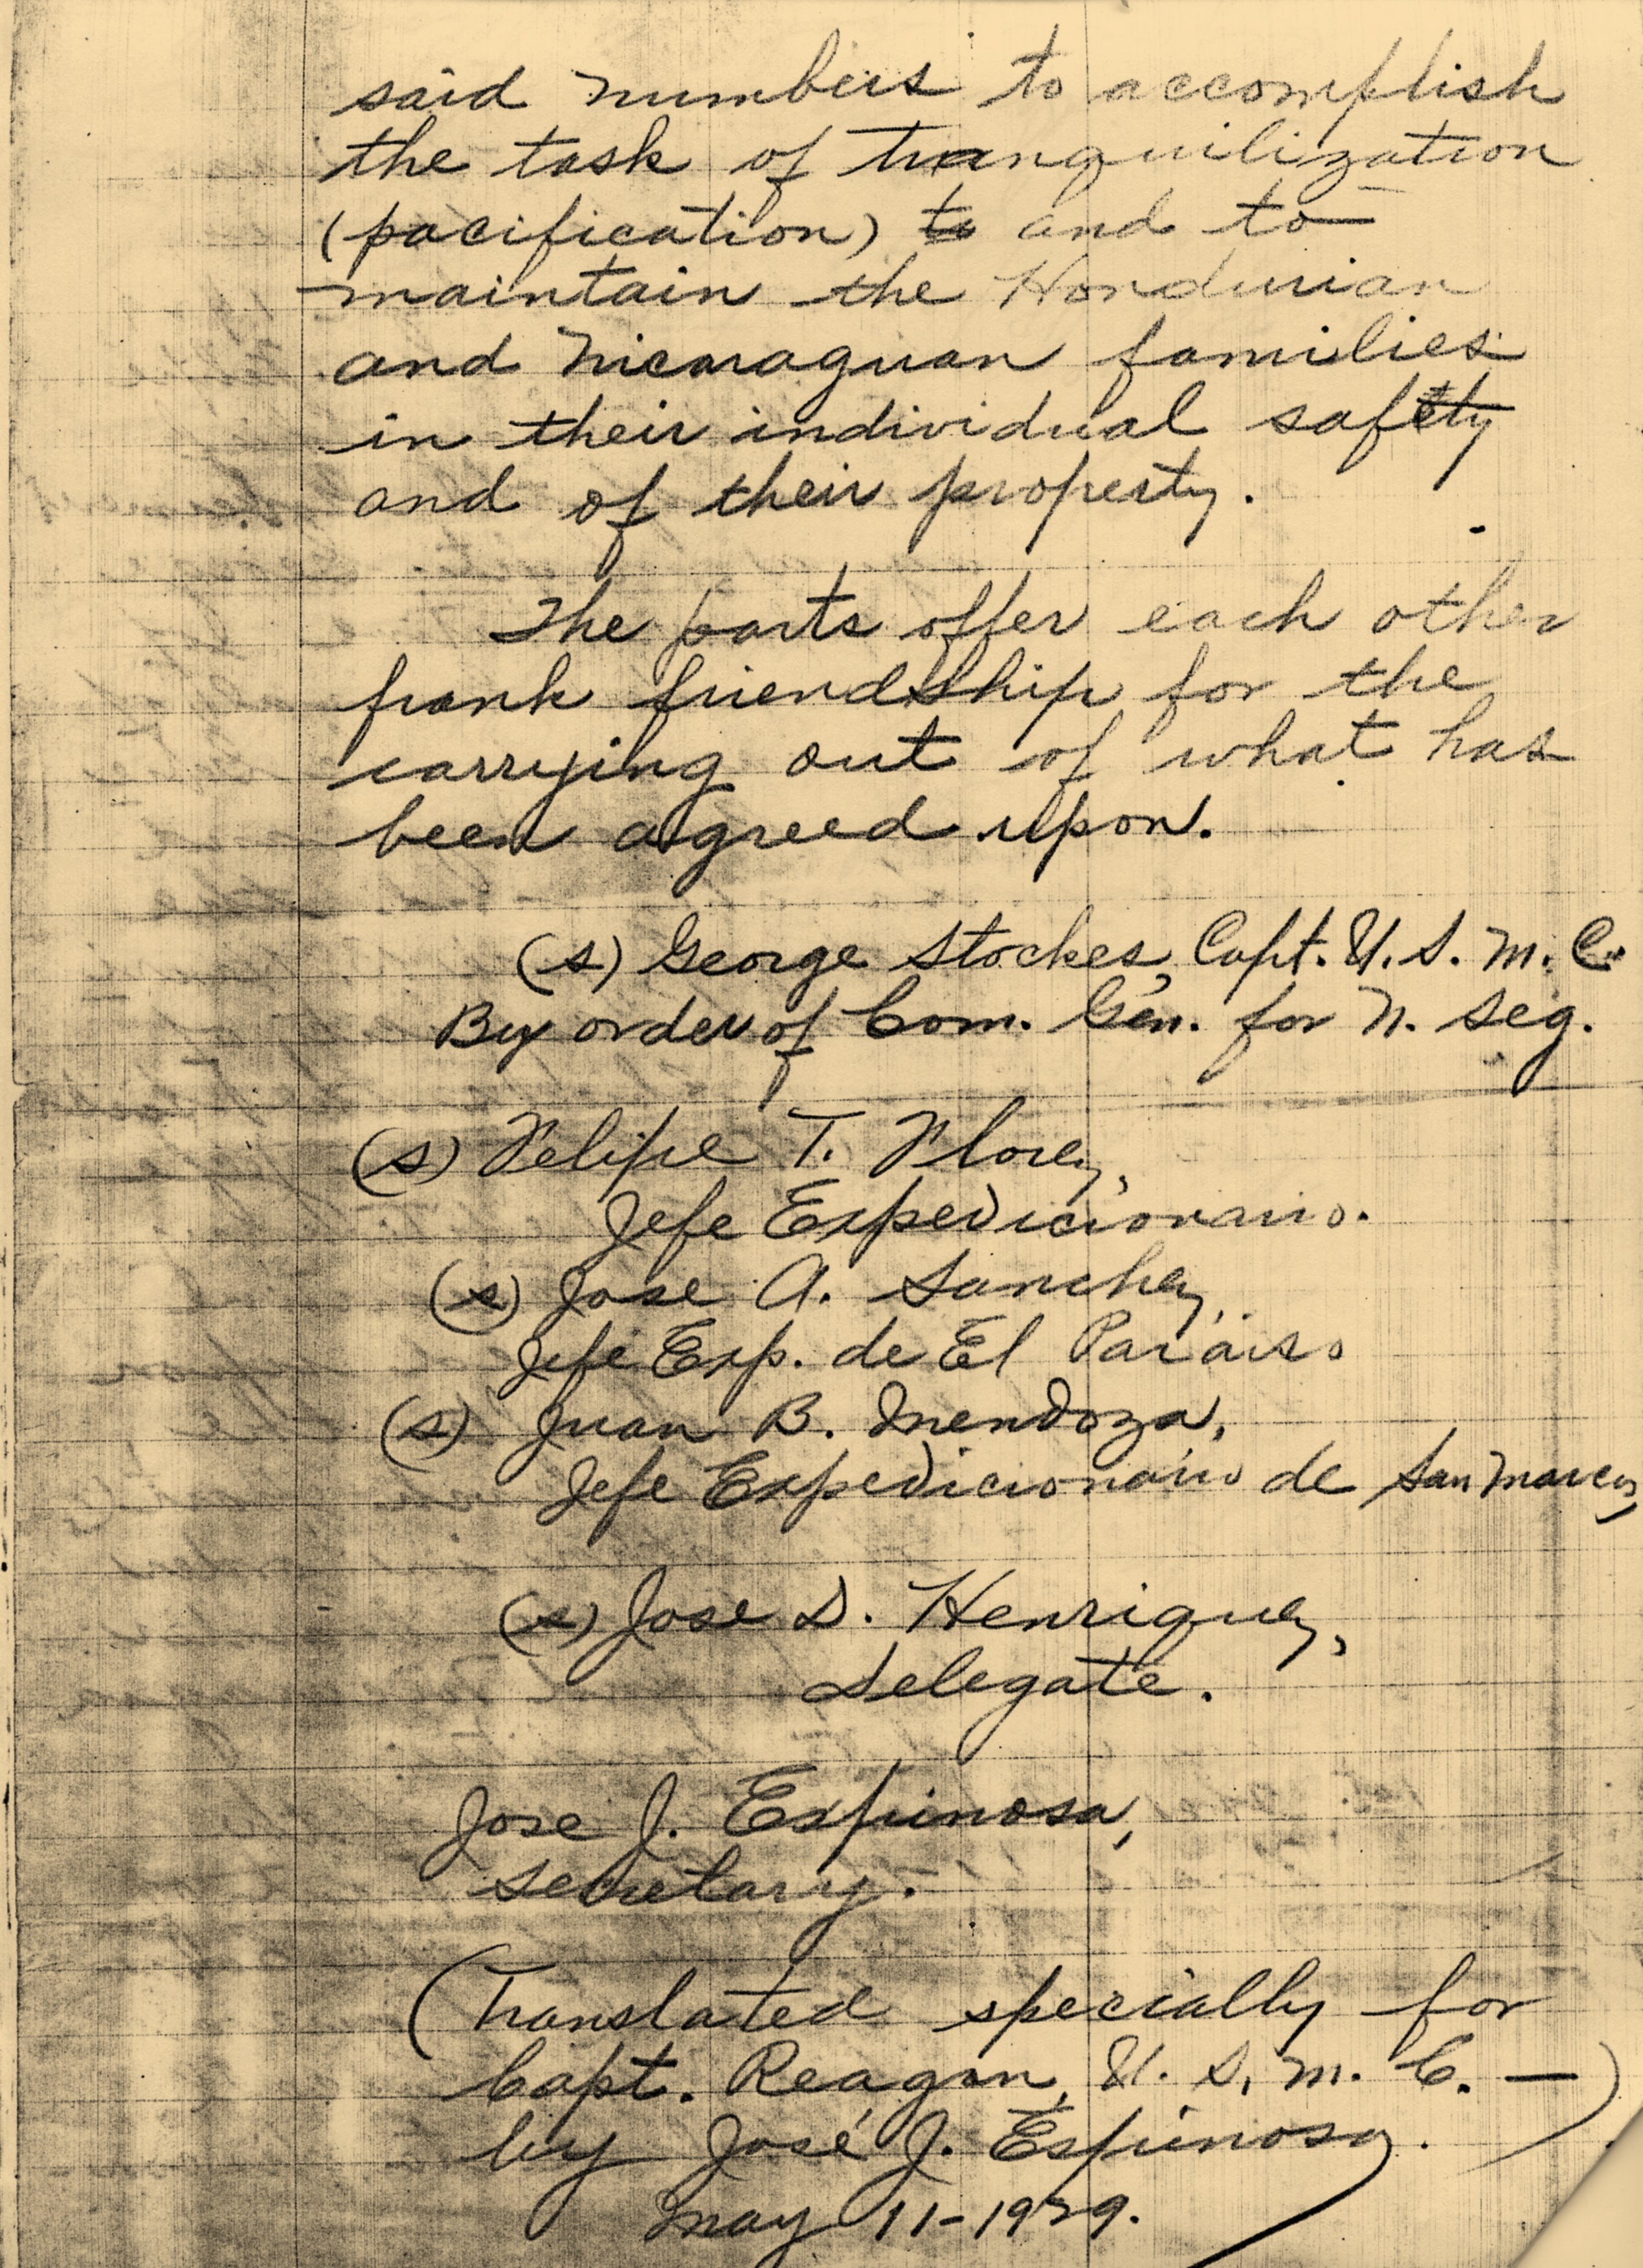 said numbers to accomplish
the task of tranquilization
(pacification) to and to
maintain the Hondurian
and Nicaraguan families
in their individual safety
and of their property.
The parts offer each other
frank friendship for the
carrying out of what has
been agreed upon.
(s) George Stockes, Capt. U.S.M.C.
By order of Com. Gen. for N. Seg.
(s) Felipe T. Florez,
Jefe Expedicionario.
(s) Jose A. Sanchez,
Jefe Exp. de El Paraiso
(s) Juan B. Mendoza,
Jefe Expedicionario de San Marcos
(s) Jose D. Henriquez,
Delegate.
Jose J. Espinosa,
Secretary.
(Translated specially for
Capt. Reagan, U.S.M.C. —)
by José J. Espinosa.
May 11-1929.